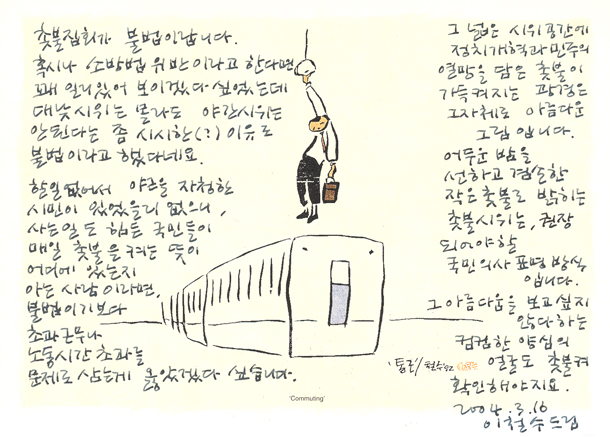 촛불집회가 불법이랍니다.
혹시나 소방법 위반이라고 한다면
꽤 일리있어 보이겠다 싶었는데
대낮시위는 몰라도 야간시위는
안된다는 좀 시시한(?) 이유로
불법이라고 했다네요.
할일없어서 야근을 자청한
시민이 있었을리 없으니,
사는일도 힘든 국민들이
매일 촛불을 켜는 뜻이
어디에 있는지
아는 사람이라면,
불법이기보다
초과근무나
노동시간 초과를
문제로 삼는게 옳았겠다 싶습니다.
'Commuting'
'통근'/철수 92
그 넓은 시위공간에
정치개혁과 민주의
열망을 담은 촛불이
가득켜지는 광경은
그자체로 아름다운
그림입니다.
어두운 밤을
선하고 겸손한
작은 촛불로 밝히는
촛불시위는, 권장
되어야할
국민의사 표명 방식
입니다.
그 아름다움을 보고싶지
않다하는
컴컴한 양심의
얼굴도 촛불켜
확인해야지요.
2004.3.16
이철수 드림